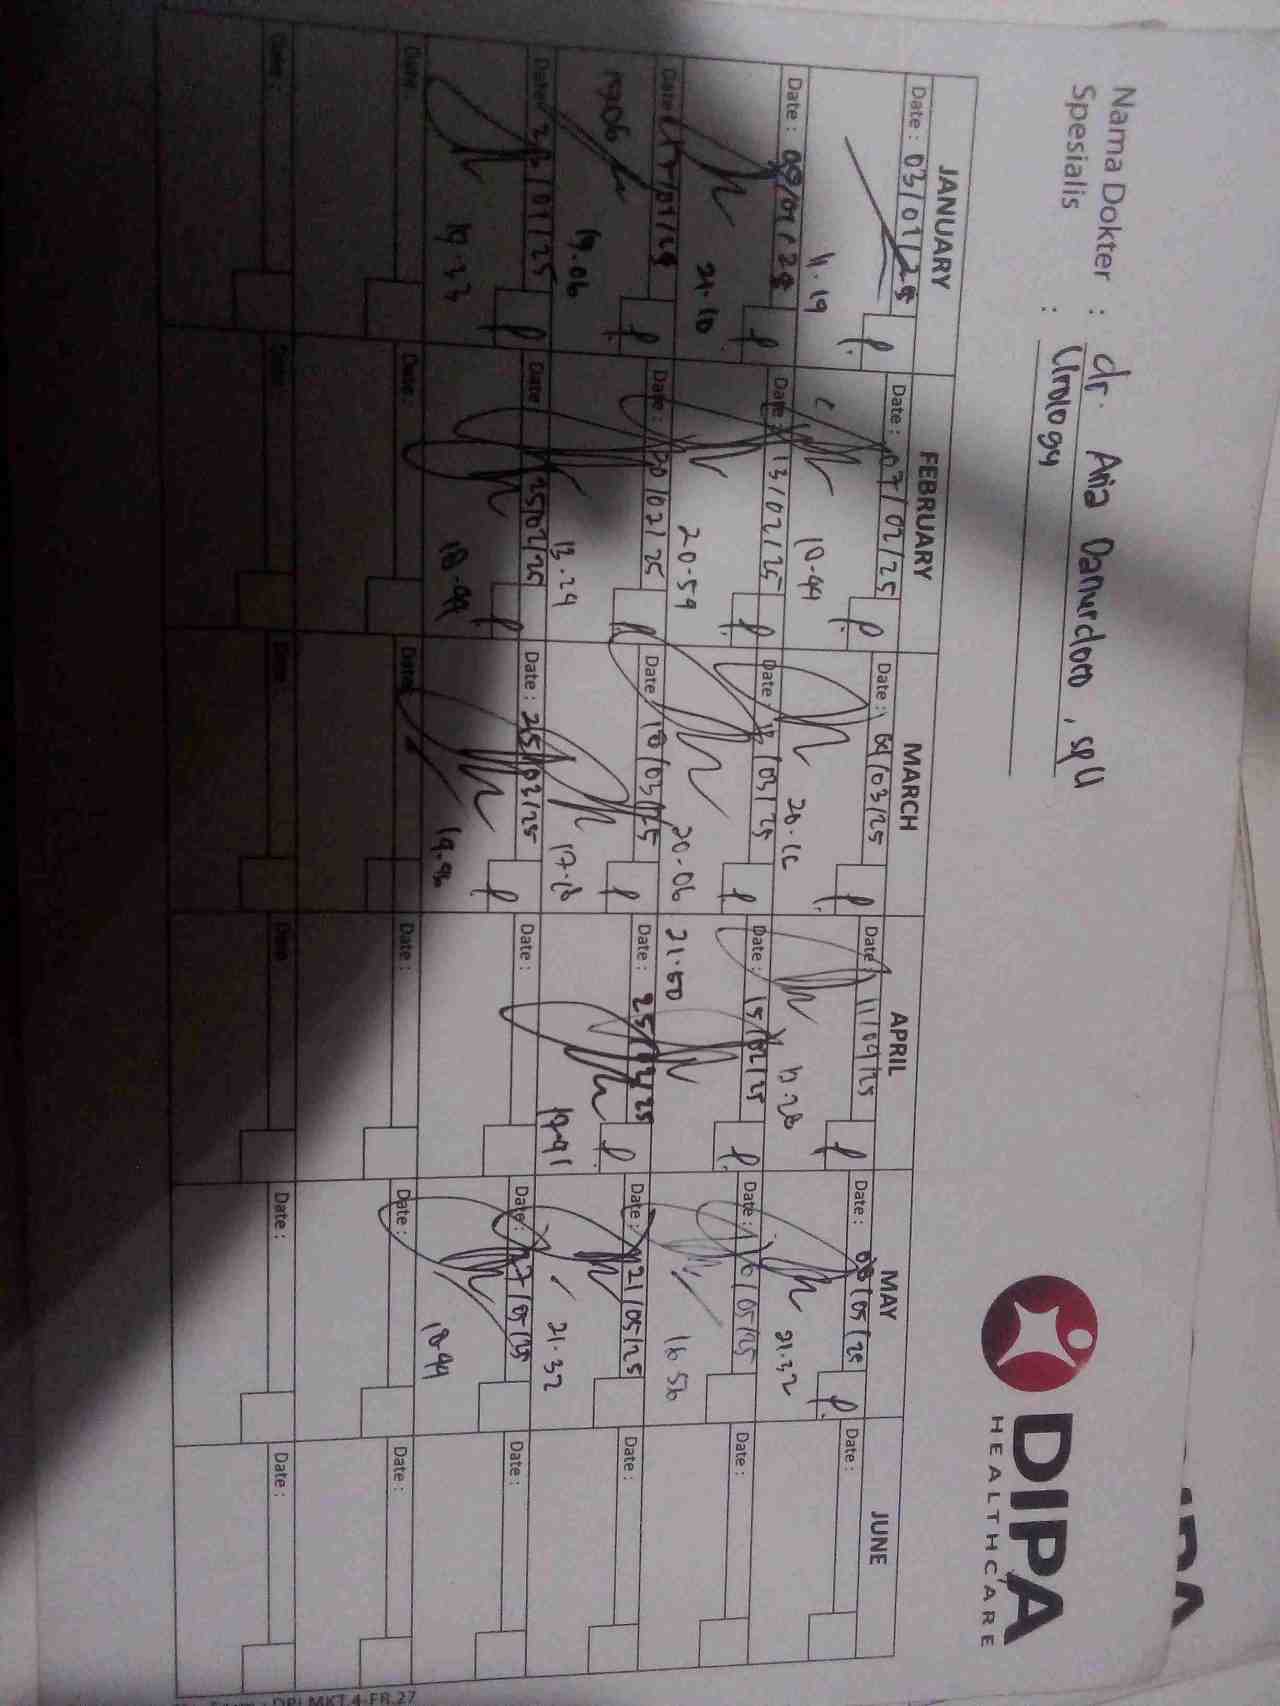 Nama Dokter : dr. Aria Danurdoro, spU
Spesialis : Urology
DIPA
HEALTHCARE
JANUARY FEBRUARY MARCH APRIL MAY JUNE
Date : 03/01/25 Date : 07/02/25 Date : /03/25 Date 11/04/25 Date : 08/05/25 Date :
11.19 18-44 20-16 17.28 21.32
Date : 09/01/25 Date 13/02/25 Date /03/25 Date : 15/02/25 Date : 16/05/25 Date :
21.10 20-59 20-06 21.50 16 56
Date 17/01/25 Date : 20/02/25 Date 18/03/25 Date : 25/02/25 Date : 21/05/25 Date :
19.06 19.06 13.29 17.18 19-41 21.32
Date 23/01/25 Date 25/02/25 Date : 25/03/25 Date : Date : 27/05/25 Date :
19.23 18-44 19.46 18-44
Date : Date : Date Date : Date : Date :
Date : Date : Date : Date Date : Date :
DPI.MKT.4-FR.27